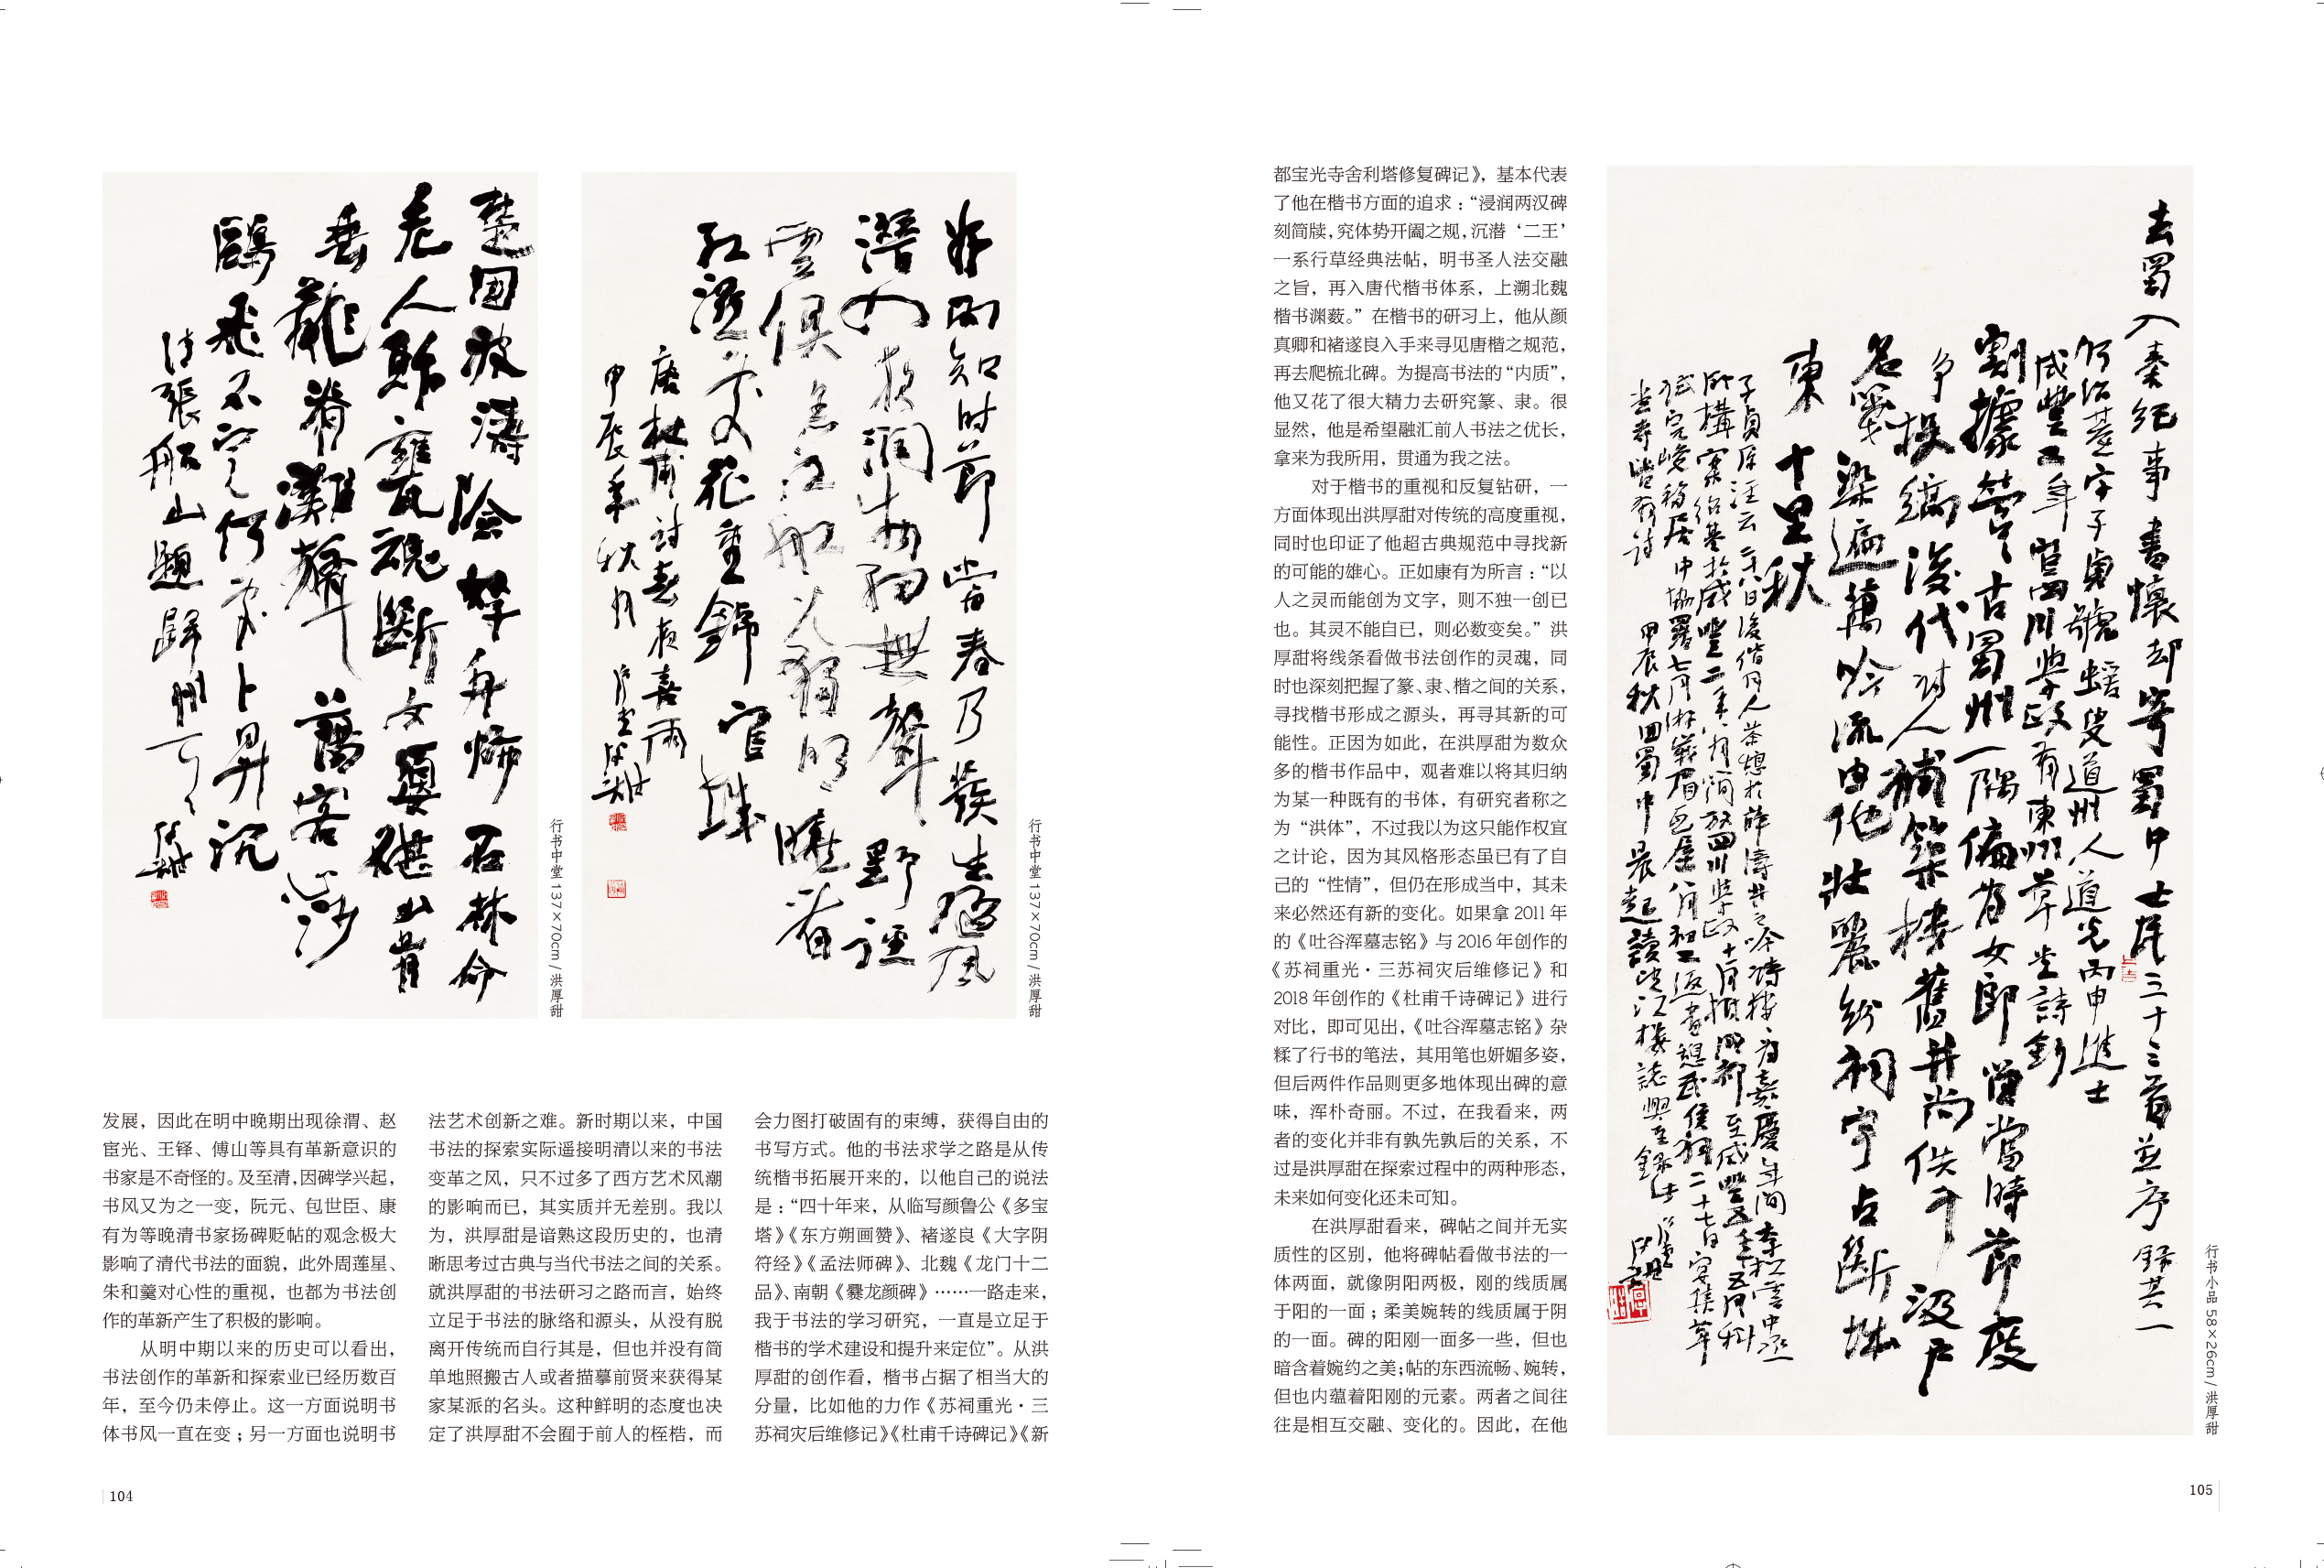 楚国波濤險
老人鮓甕魂斷女嬃碪山
垂龍脊灘聲舊客
鷗飛不定何處卜昇沉
張船山題歸州
行书中堂 137×70cm / 洪厚甜
好雨知时節當春乃發生随风
潛入夜润物细無聲野徑
雲俱黑江船火獨明曉看
紅濕處花重錦官城
唐杜甫詩春夜喜雨
甲辰年秋月
行书中堂 137×70cm / 洪厚甜
发展，因此在明中晚期出现徐渭、赵
宧光、王铎、傅山等具有革新意识的
书家是不奇怪的。及至清，因碑学兴起，
书风又为之一变，阮元、包世臣、康
有为等晚清书家扬碑贬帖的观念极大
影响了清代书法的面貌，此外周莲星、
朱和羹对心性的重视，也都为书法创
作的革新产生了积极的影响。
从明中期以来的历史可以看出，
书法创作的革新和探索业已经历数百
年，至今仍未停止。这一方面说明书
体书风一直在变；另一方面也说明书
法艺术创新之难。新时期以来，中国
书法的探索实际遥接明清以来的书法
变革之风，只不过多了西方艺术风潮
的影响而已，其实质并无差别。我以
为，洪厚甜是谙熟这段历史的，也清
晰思考过古典与当代书法之间的关系。
就洪厚甜的书法研习之路而言，始终
立足于书法的脉络和源头，从没有脱
离开传统而自行其是，但也并没有简
单地照搬古人或者描摹前贤来获得某
家某派的名头。这种鲜明的态度也决
定了洪厚甜不会囿于前人的桎梏，而
会力图打破固有的束缚，获得自由的
书写方式。他的书法求学之路是从传
统楷书拓展开来的，以他自己的说法
是：“四十年来，从临写颜鲁公《多宝
塔》《东方朔画赞》、褚遂良《大字阴
符经》《孟法师碑》、北魏《龙门十二
品》、南朝《爨龙颜碑》……一路走来，
我于书法的学习研究，一直是立足于
楷书的学术建设和提升来定位”。从洪
厚甜的创作看，楷书占据了相当大的
分量，比如他的力作《苏祠重光·三
苏祠灾后维修记》《杜甫千诗碑记》《新
104
都宝光寺舍利塔修复碑记》，基本代表
了他在楷书方面的追求：“浸润两汉碑
刻简牍，究体势开阖之规，沉潜‘二王’
一系行草经典法帖，明书圣人法交融
之旨，再入唐代楷书体系，上溯北魏
楷书渊薮。”在楷书的研习上，他从颜
真卿和褚遂良入手来寻见唐楷之规范，
再去爬梳北碑。为提高书法的“内质”，
他又花了很大精力去研究篆、隶。很
显然，他是希望融汇前人书法之优长，
拿来为我所用，贯通为我之法。
对于楷书的重视和反复钻研，一
方面体现出洪厚甜对传统的高度重视，
同时也印证了他超古典规范中寻找新
的可能的雄心。正如康有为所言：“以
人之灵而能创为文字，则不独一创已
也。其灵不能自已，则必数变矣。”洪
厚甜将线条看做书法创作的灵魂，同
时也深刻把握了篆、隶、楷之间的关系，
寻找楷书形成之源头，再寻其新的可
能性。正因为如此，在洪厚甜为数众
多的楷书作品中，观者难以将其归纳
为某一种既有的书体，有研究者称之
为“洪体”，不过我以为这只能作权宜
之计论，因为其风格形态虽已有了自
己的“性情”，但仍在形成当中，其未
来必然还有新的变化。如果拿 2011 年
的《吐谷浑墓志铭》与 2016 年创作的
《苏祠重光·三苏祠灾后维修记》和
2018 年创作的《杜甫千诗碑记》进行
对比，即可见出，《吐谷浑墓志铭》杂
糅了行书的笔法，其用笔也妍媚多姿，
但后两件作品则更多地体现出碑的意
味，浑朴奇丽。不过，在我看来，两
者的变化并非有孰先孰后的关系，不
过是洪厚甜在探索过程中的两种形态，
未来如何变化还未可知。
在洪厚甜看来，碑帖之间并无实
质性的区别，他将碑帖看做书法的一
体两面，就像阴阳两极，刚的线质属
于阳的一面；柔美婉转的线质属于阴
的一面。碑的阳刚一面多一些，但也
暗含着婉约之美；帖的东西流畅、婉转，
但也内蕴着阳刚的元素。两者之间往
往是相互交融、变化的。因此，在他
去蜀入秦纪事書懷却寄蜀中士民三十三首並序 録其一
何绍基字子貞號蝯叟道州人道光丙申進士
咸豐二年官四川學政有東洲草堂詩鈔
割據營營古蜀州一隅偏为女郎留當時節度
争投縞後代詩人補築樓舊井尚供千汲户
名箋染遍萬吟流由他壯麗紛祠宇占斷城
東十里秋
行书小品 58×26cm / 洪厚甜
105